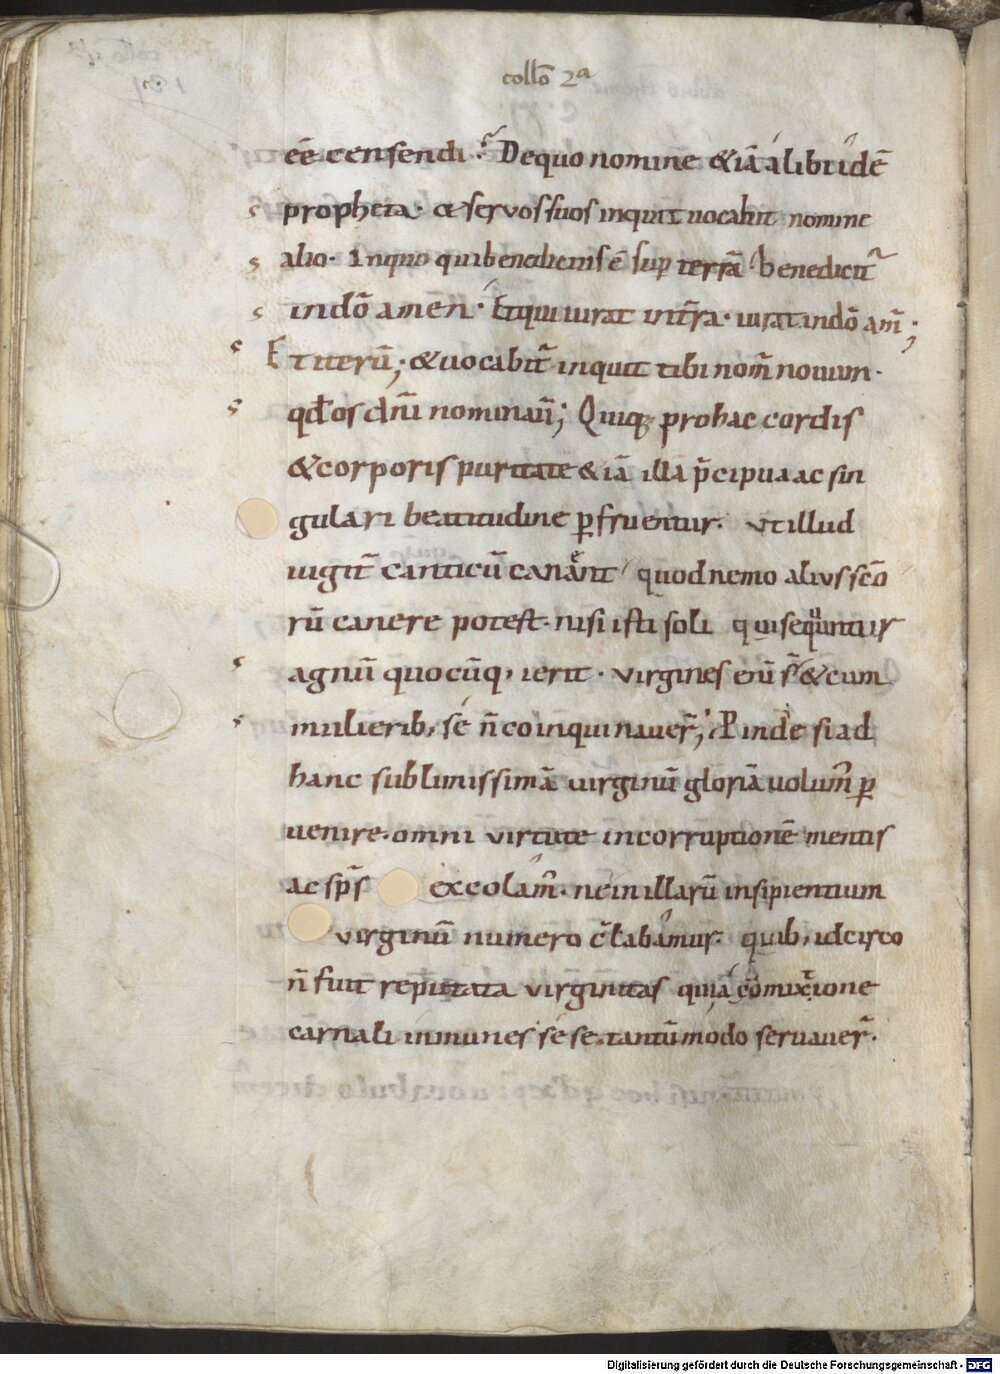 collõ 2ª
eẽ censendi. Dequo nomine &iã alibi idẽ
propheta. & servos suos inquit vocabit nomine
alio. Inquo quibenedictusẽ sup terrã benedicit̃
indõ amen. Etqui iurat int̃ra. iurat indõ am̃;
Et iterũ; & vocabit̃ inquit tibi nom̃ novum.
qđ os dñi nominavit; Quiq; pro hac cordis
&corporis puritate &iã illa p̃cipua ac sin
gulari beatitudine pfruentur. ut illud
iugit̃ canticũ canant quod nemo alius scõ
rũ canere potest. nisi isti soli qui sequntur
agnũ quocũq, ierit. virgines enĩ s̃ & cum
mulierib, se ñ coinquinaver̃; Proinde si ad
hanc sublimissimã virginũ gloriã volum̃ p
uenire. omni virtute incorruptionẽ mentis
ac sp̃s excolam̃. ne in illarũ insipientium
virginũ numero c̃tabimur. quib, idcirco
ñ fuit reputata virginitas quia cõmixtione
carnali inmunes se se. tantũmodo servaver̃.
Digitalisierung gefördert durch die Deutsche Forschungsgemeinschaft - DFG